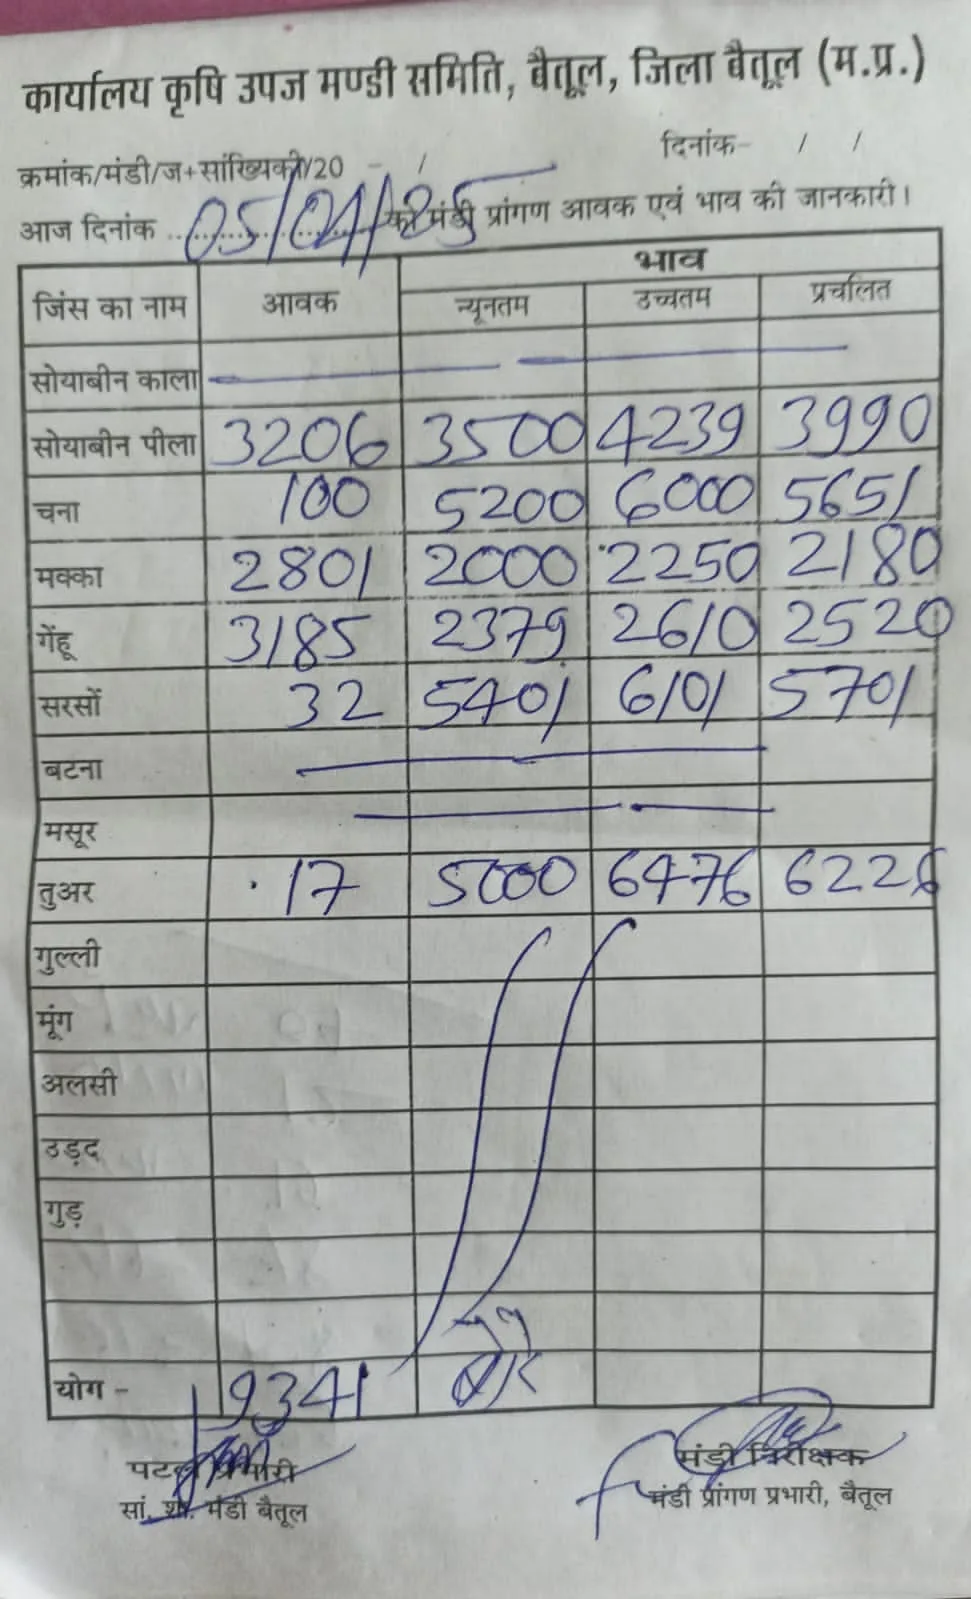 कार्यालय कृषि उपज मण्डी समिति, बैतूल, जिला बैतूल (म.प्र.)
दिनांक- / /
क्रमांक/मंडी/ज+सांख्यिकी/20 - /
आज दिनांक 05/04/25 को मंडी प्रांगण आवक एवं भाव की जानकारी।
भाव
जिंस का नाम आवक न्यूनतम उच्चतम प्रचलित
सोयाबीन काला
सोयाबीन पीला 3206 3500 4239 3990
चना 100 5200 6000 5651
मक्का 2801 2000 2250 2180
गेंहू 3185 2379 2610 2520
सरसों 32 5401 6101 5701
बटना
मसूर
तुअर 17 5000 6476 6226
गुल्ली
मूंग
अलसी
उड़द
गुड़
योग - 9341
पटल प्रभारी मंडी निरीक्षक
सां. शा. मंडी बैतूल मंडी प्रांगण प्रभारी, बैतूल